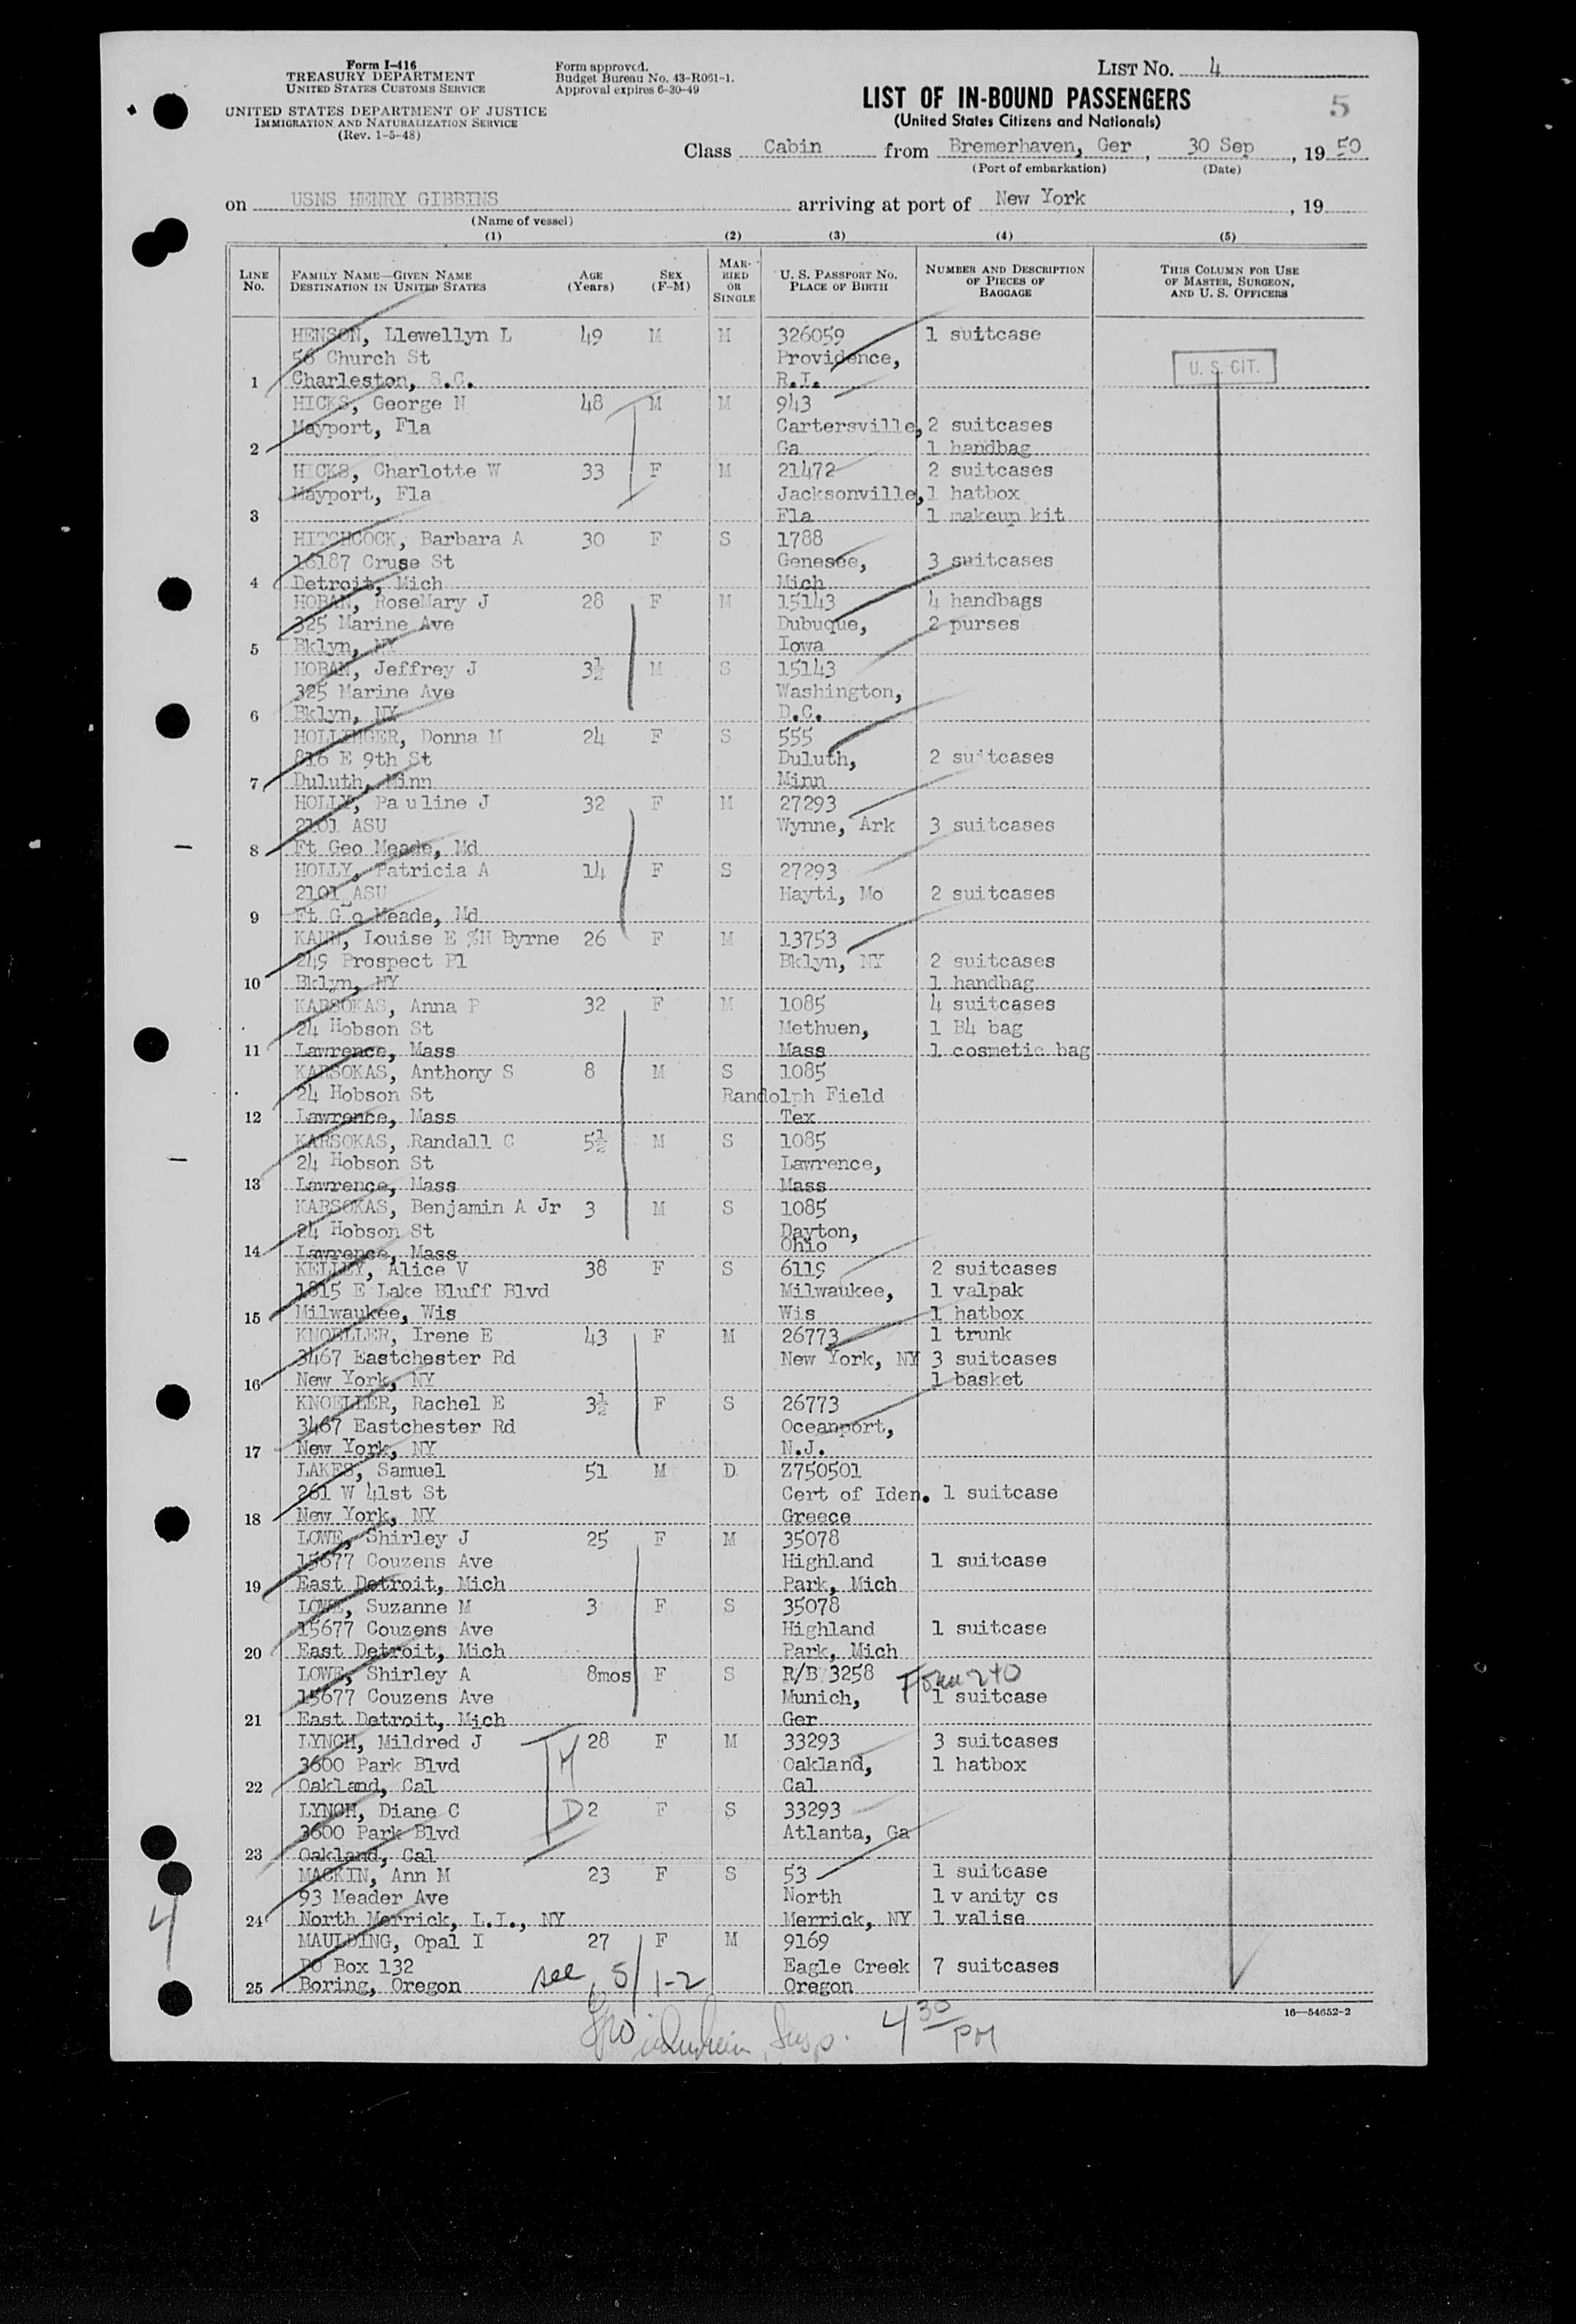 Form I-416
TREASURY DEPARTMENT
UNITED STATES CUSTOMS SERVICE
UNITED STATES DEPARTMENT OF JUSTICE
IMMIGRATION AND NATURALIZATION SERVICE
(Rev. 1-5-48)
Form approved.
Budget Bureau No. 43-R061-1.
Approval expires 6-30-49
LIST NO. 4
5
LIST OF IN-BOUND PASSENGERS
(United States Citizens and Nationals)
Class Cabin from Bremerhaven, Ger, 30 Sep, 19 50
(Port of embarkation) (Date)
on USNS HENRY GIBBINS arriving at port of New York, 19
(Name of vessel)
(1) (2) (3) (4) (5)
LINE NO.
FAMILY NAME—GIVEN NAME
DESTINATION IN UNITED STATES
AGE (Years)
SEX (F-M)
MARRIED OR SINGLE
U. S. PASSPORT NO.
PLACE OF BIRTH
NUMBER AND DESCRIPTION OF PIECES OF BAGGAGE
THIS COLUMN FOR USE OF MASTER, SURGEON, AND U. S. OFFICERS
HENSON, Llewellyn L 49 M M 326059 1 suitcase
56 Church St Providence,
1 Charleston, S.C. R.I.
U. S. CIT.
HICKS, George N 48 M M 943
Mayport, Fla Cartersville, 2 suitcases
2 Ga 1 handbag
HICKS, Charlotte W 33 F M 21472 2 suitcases
Mayport, Fla Jacksonville, 1 hatbox
3 Fla 1 makeup kit
HITCHCOCK, Barbara A 30 F S 1788
16187 Cruse St Genesee, 3 suitcases
4 Detroit, Mich Mich
HOBAN, RoseMary J 28 F M 15143 4 handbags
325 Marine Ave Dubuque, 2 purses
5 Bklyn, NY Iowa
HOBAN, Jeffrey J 3½ M S 15143
325 Marine Ave Washington,
6 Bklyn, NY D.C.
HOLLINGER, Donna M 24 F S 555
816 E 9th St Duluth, 2 suitcases
7 Duluth, Minn Minn
HOLLY, Pauline J 32 F M 27293
2101 ASU Wynne, Ark 3 suitcases
8 Ft Geo Meade, Md
HOLLY, Patricia A 14 F S 27293
2101 ASU Hayti, Mo 2 suitcases
9 Ft G o Meade, Md
KANN, Louise E %H Byrne 26 F M 13753
249 Prospect Pl Bklyn, NY 2 suitcases
10 Bklyn, NY 1 handbag
KARSOKAS, Anna P 32 F M 1085 4 suitcases
24 Hobson St Methuen, 1 B4 bag
11 Lawrence, Mass Mass 1 cosmetic bag
KARSOKAS, Anthony S 8 M S 1085
24 Hobson St Randolph Field
12 Lawrence, Mass Tex
KARSOKAS, Randall C 5½ M S 1085
24 Hobson St Lawrence,
13 Lawrence, Mass Mass
KARSOKAS, Benjamin A Jr 3 M S 1085
24 Hobson St Dayton,
14 Lawrence, Mass Ohio
KELLEY, Alice V 38 F S 6119 2 suitcases
1815 E Lake Bluff Blvd Milwaukee, 1 valpak
15 Milwaukee, Wis Wis 1 hatbox
KNOELLER, Irene E 43 F M 26773 1 trunk
3467 Eastchester Rd New York, NY 3 suitcases
16 New York, NY 1 basket
KNOELLER, Rachel E 3½ F S 26773
3467 Eastchester Rd Oceanport,
17 New York, NY N.J.
LAKES, Samuel 51 M D Z750501
261 W 41st St Cert of Iden. 1 suitcase
18 New York, NY Greece
LOWE, Shirley J 25 F M 35078
15677 Couzens Ave Highland 1 suitcase
19 East Detroit, Mich Park, Mich
LOWE, Suzanne M 3 F S 35078
15677 Couzens Ave Highland 1 suitcase
20 East Detroit, Mich Park, Mich
LOWE, Shirley A 8mos F S R/B 3258 Form 240
15677 Couzens Ave Munich, 1 suitcase
21 East Detroit, Mich Ger
LYNCH, Mildred J M 28 F M 33293 3 suitcases
3600 Park Blvd Oakland, 1 hatbox
22 Oakland, Cal Cal
LYNCH, Diane C D 2 F S 33293
3600 Park Blvd Atlanta, Ga
23 Oakland, Cal
MACKIN, Ann M 23 F S 53 1 suitcase
93 Meader Ave North 1 vanity cs
24 North Merrick, L.I., NY Merrick, NY 1 valise
4
MAULDING, Opal I 27 F M 9169
PO Box 132 Eagle Creek 7 suitcases
25 Boring, Oregon see 5/1-2 Oregon
16—54652-2
Insp. 4 30 PM